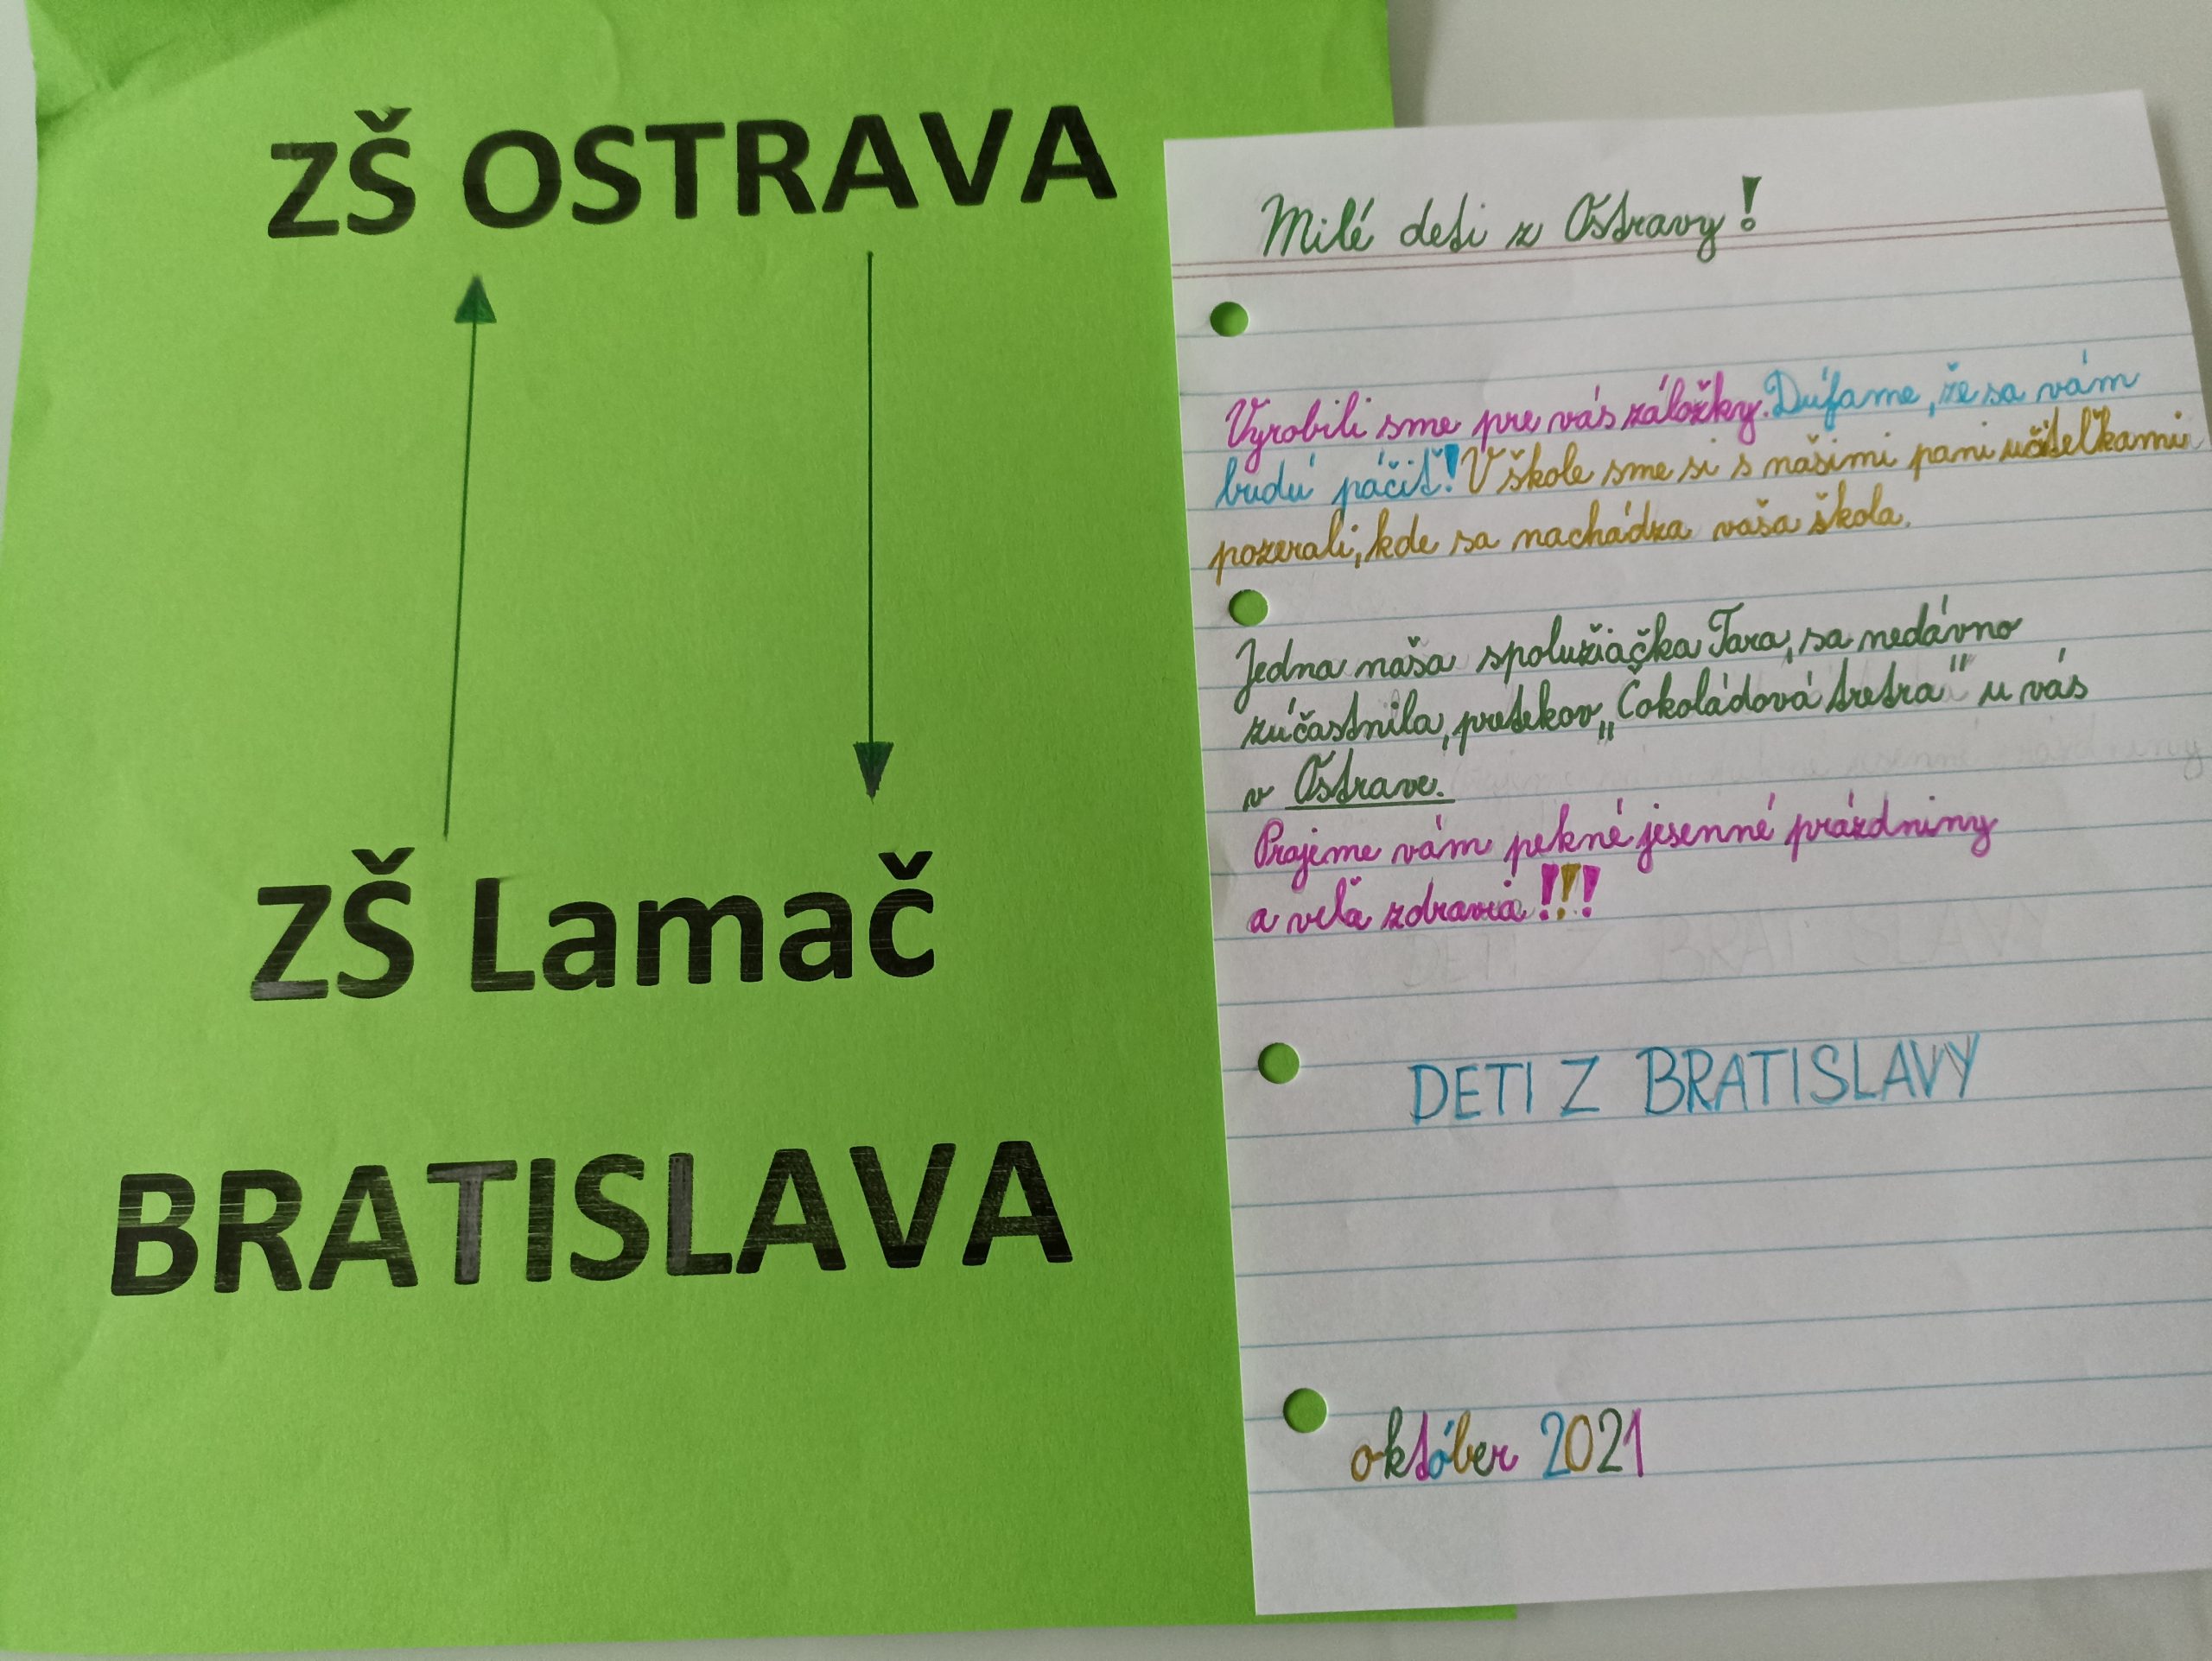 ZŠ OSTRAVA
ZŠ Lamač
BRATISLAVA
Milé deti z Ostravy!
Vyrobili sme pre vás záložky. Dúfame, že sa vám
budú páčiť! V škole sme si s našimi pani učiteľkami
pozerali, kde sa nachádza vaša škola.
Jedna naša spolužiačka Tara, sa nedávno
zúčastnila, pretekov „Čokoládová tretra" u vás
v Ostrave.
Prajeme vám pekné jesenné prázdniny
a veľa zdravia!!!
DETI Z BRATISLAVY
október 2021